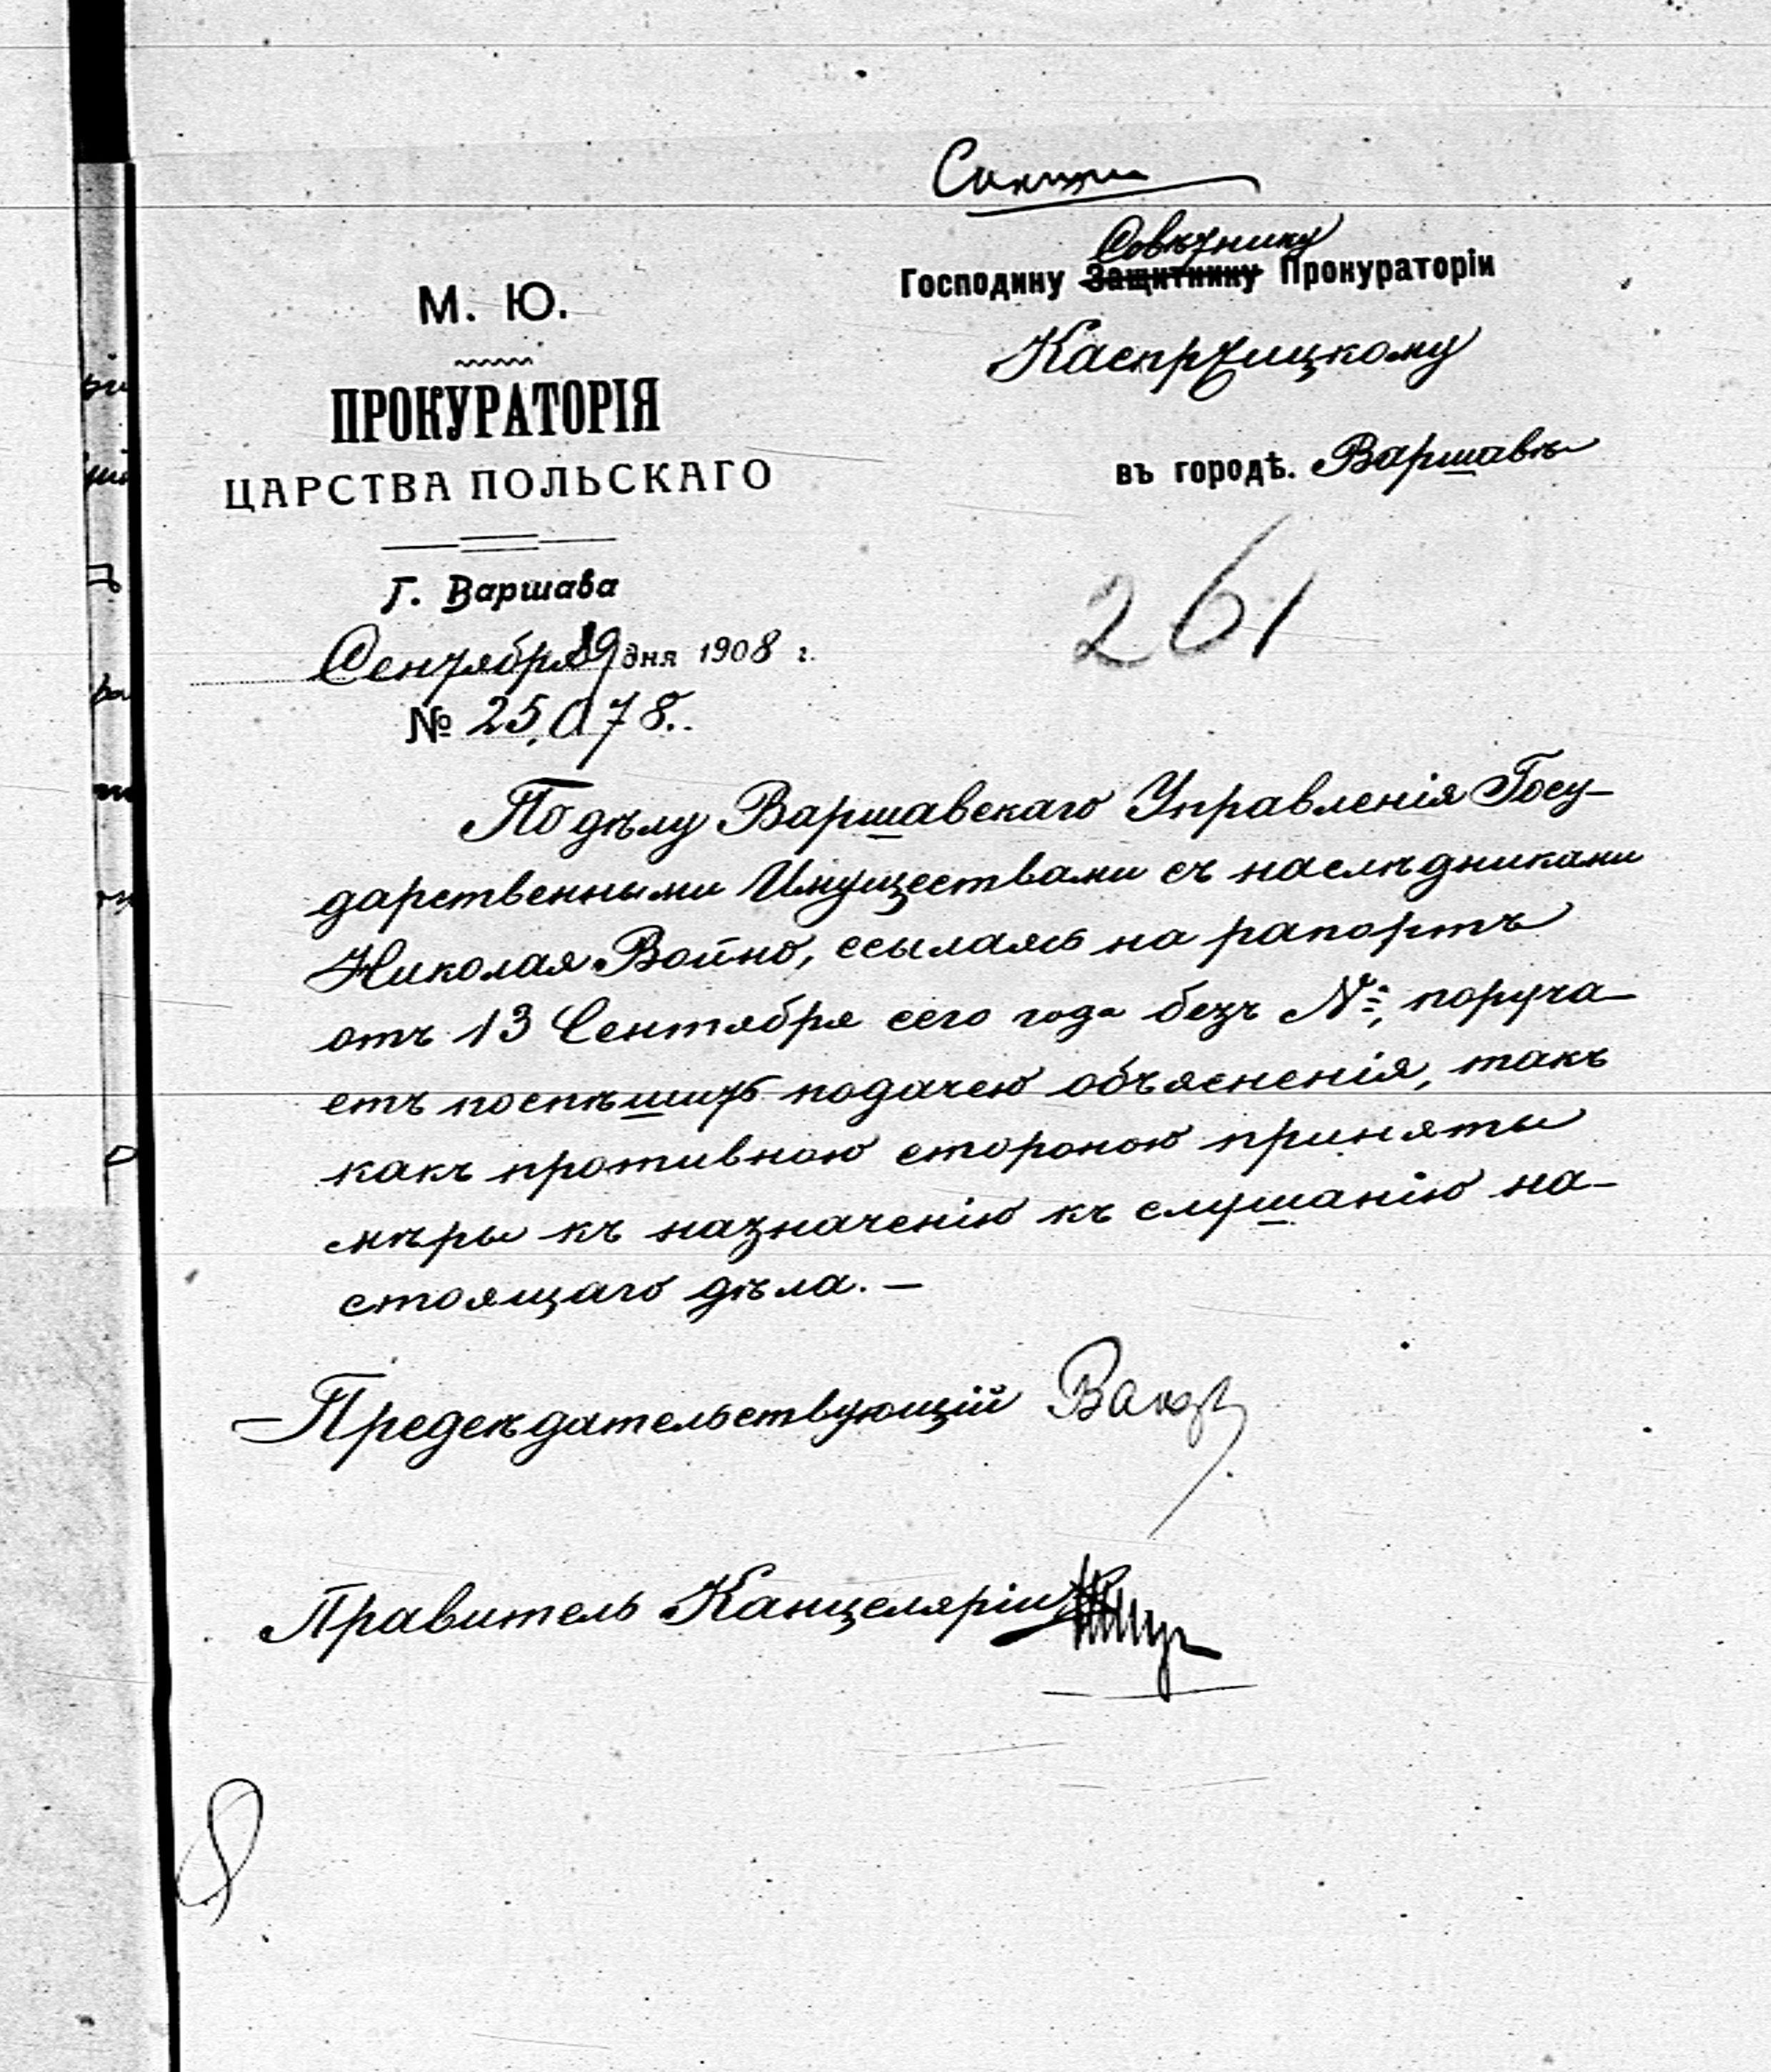 Совѣтнику
Господину Защитнику Прокураторіи
Каспржицкому
въ городѣ. Варшавѣ
М. Ю.
ПРОКУРАТОРІЯ
ЦАРСТВА ПОЛЬСКАГО
Г. Варшава
Сентября 19 дня 1908 г.
№ 25,078.
261
По дѣлу Варшавскаго Управленія Госу-
дарственными Имуществами съ наслѣдниками
Николая Войно, ссылаясь на рапортъ
отъ 13 Сентября сего года безъ №, поруча-
етъ поспѣшить подачею объясненія, такъ
какъ противною стороною приняты
мѣры къ назначенію къ слушанію на-
стоящаго дѣла. —
Предсѣдательствующій
Правитель Канцеляріи